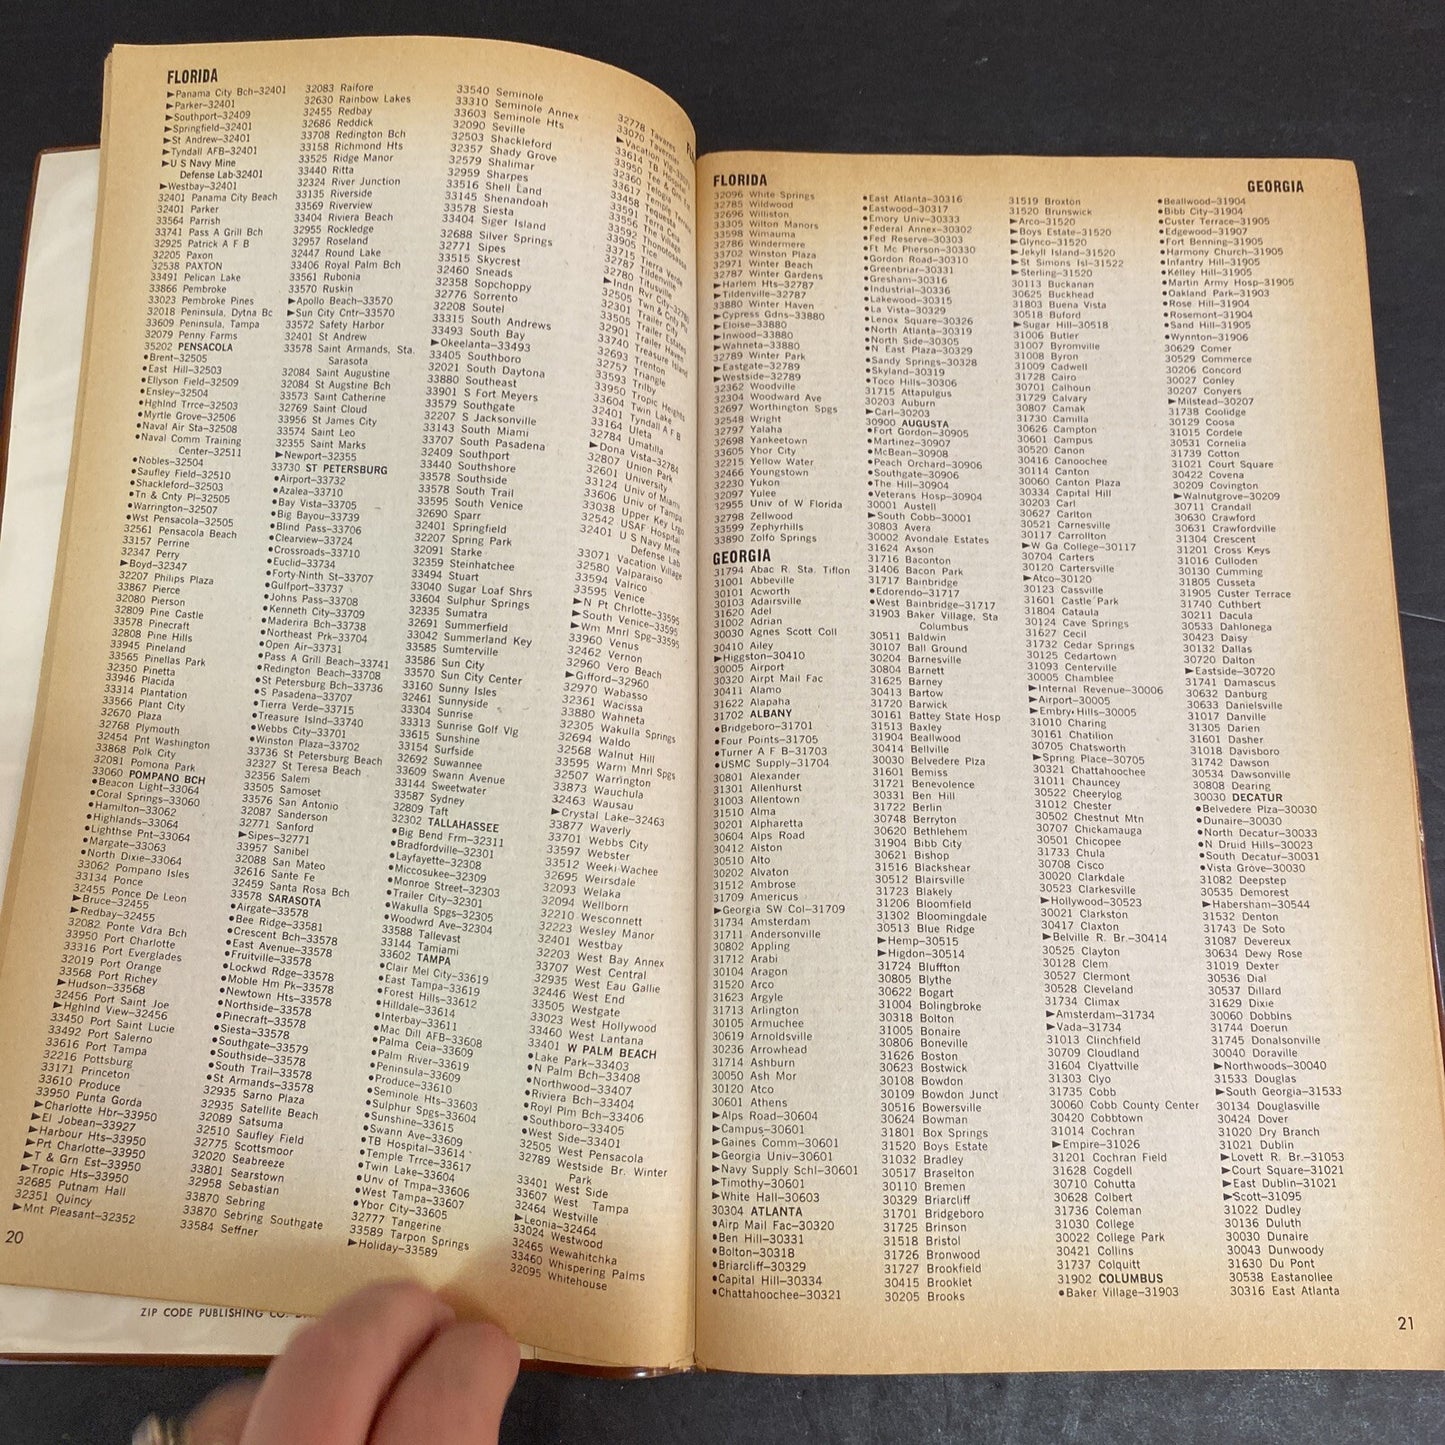 FLORIDA
►Panama City Bch–32401
►Parker–32401
►Southport–32409
►Springfield–32401
►St Andrew–32401
►Tyndall AFB–32401
►U S Navy Mine
Defense Lab–32401
►Westbay–32401
32401 Panama City Beach
32401 Parker
33564 Parrish
33741 Pass A Grill Bch
32925 Patrick A F B
32205 Paxon
32538 PAXTON
33491 Pelican Lake
33866 Pembroke
33023 Pembroke Pines
32018 Peninsula, Dytna Bc
33609 Peninsula, Tampa
32079 Penny Farms
35202 PENSACOLA
•Brent–32505
•East Hill–32503
•Ellyson Field–32509
•Ensley–32504
•Hghlnd Trrce–32503
•Myrtle Grove–32506
•Naval Air Sta–32508
•Naval Comm Training
Center–32511
•Nobles–32504
•Saufley Field–32510
•Shackleford–32503
•Tn & Cnty Pl–32505
•Warrington–32507
•Wst Pensacola–32505
32561 Pensacola Beach
33157 Perrine
32347 Perry
►Boyd–32347
32207 Philips Plaza
33867 Pierce
32080 Pierson
32809 Pine Castle
33578 Pinecraft
32808 Pine Hills
33945 Pineland
33565 Pinellas Park
32350 Pinetta
33946 Placida
33314 Plantation
33566 Plant City
32670 Plaza
32768 Plymouth
32454 Pnt Washington
33868 Polk City
32081 Pomona Park
33060 POMPANO BCH
•Beacon Light–33064
•Coral Springs–33060
•Hamilton–33062
•Highlands–33064
•Lighthse Pnt–33064
•Margate–33063
•North Dixie–33064
33062 Pompano Isles
33134 Ponce
32455 Ponce De Leon
►Bruce–32455
►Redbay–32455
32082 Ponte Vdra Bch
33950 Port Charlotte
33316 Port Everglades
32019 Port Orange
33568 Port Richey
►Hudson–33568
32456 Port Saint Joe
►Hghlnd View–32456
33450 Port Saint Lucie
33492 Port Salerno
33616 Port Tampa
32216 Pottsburg
33171 Princeton
33610 Produce
33950 Punta Gorda
►Charlotte Hbr–33950
►El Jobean–33927
►Harbour Hts–33950
►Prt Charlotte–33950
►T & Grn Est–33950
►Tropic Hts–33950
32685 Putnam Hall
32351 Quincy
►Mnt Pleasant–32352
32083 Raifore
32630 Rainbow Lakes
32455 Redbay
32686 Reddick
33708 Redington Bch
33158 Richmond Hts
33525 Ridge Manor
33440 Ritta
32324 River Junction
33135 Riverside
33569 Riverview
33404 Riviera Beach
32955 Rockledge
32957 Roseland
32447 Round Lake
33406 Royal Palm Bch
33561 Rubonia
33570 Ruskin
►Apollo Beach–33570
►Sun City Cntr–33570
33572 Safety Harbor
32401 St Andrew
33578 Saint Armands, Sta.
Sarasota
32084 Saint Augustine
32084 St Augstine Bch
33573 Saint Catherine
32769 Saint Cloud
33956 St James City
33574 Saint Leo
32355 Saint Marks
►Newport–32355
33730 ST PETERSBURG
•Airport–33732
•Azalea–33710
•Bay Vista–33705
•Big Bayou–33739
•Blind Pass–33706
•Clearview–33724
•Crossroads–33710
•Euclid–33734
•Forty-Ninth St–33707
•Gulfport–33737
•Johns Pass–33708
•Kenneth City–33709
•Maderira Bch–33738
•Northeast Prk–33704
•Open Air–33731
•Pass A Grill Beach–33741
•Redington Beach–33708
•St Petersburg Bch–33736
•S Pasadena–33707
•Tierra Verde–33715
•Treasure Islnd–33740
•Webbs City–33701
•Winston Plaza–33702
33736 St Petersburg Beach
32327 St Teresa Beach
32356 Salem
33505 Samoset
33576 San Antonio
32087 Sanderson
32771 Sanford
►Sipes–32771
33957 Sanibel
32088 San Mateo
32616 Sante Fe
32459 Santa Rosa Bch
33578 SARASOTA
•Airgate–33578
•Bee Ridge–33581
•Crescent Bch–33578
•East Avenue–33578
•Fruitville–33578
•Lockwd Rdge–33578
•Moble Hm Pk–33578
•Newtown Hts–33578
•Northside–33578
•Pinecraft–33578
•Siesta–33578
•Southgate–33579
•Southside–33578
•South Trail–33578
•St Armands–33578
32935 Sarno Plaza
32935 Satellite Beach
32089 Satsuma
32510 Saufley Field
32775 Scottsmoor
32020 Seabreeze
33801 Searstown
32958 Sebastian
33870 Sebring
33870 Sebring Southgate
33584 Seffner
33540 Seminole
33310 Seminole Annex
33603 Seminole Hts
32090 Seville
32503 Shackleford
32357 Shady Grove
32579 Shalimar
32959 Sharpes
33516 Shell Land
33145 Shenandoah
33578 Siesta
33404 Siger Island
32688 Silver Springs
32771 Sipes
33515 Skycrest
32460 Sneads
32358 Sopchoppy
32776 Sorrento
32208 Soutel
33315 South Andrews
33493 South Bay
►Okeelanta–33493
33405 Southboro
32021 South Daytona
33880 Southeast
33901 S Fort Meyers
33579 Southgate
32207 S Jacksonville
33143 South Miami
33707 South Pasadena
32409 Southport
33440 Southshore
33578 Southside
33578 South Trail
33595 South Venice
32690 Sparr
32401 Springfield
32207 Spring Park
32091 Starke
32359 Steinhatchee
33494 Stuart
33040 Sugar Loaf Shrs
33604 Sulphur Springs
32335 Sumatra
32691 Summerfield
33042 Summerland Key
33585 Sumterville
33586 Sun City
33570 Sun City Center
33160 Sunny Isles
32461 Sunnyside
33304 Sunrise
33313 Sunrise Golf Vlg
33615 Sunshine
33154 Surfside
32692 Suwannee
33609 Swann Avenue
33144 Sweetwater
33587 Sydney
32809 Taft
32302 TALLAHASSEE
•Big Bend Frm–32311
•Bradfordville–32301
•Layfayette–32308
•Miccosukee–32309
•Monroe Street–32303
•Trailer City–32301
•Wakulla Spgs–32305
•Woodwrd Ave–32304
33588 Tallevast
33144 Tamiami
33602 TAMPA
•Clair Mel City–33619
•East Tampa–33619
•Forest Hills–33612
•Hilldale–33614
•Interbay–33611
•Mac Dill AFB–33608
•Palma Ceia–33609
•Palm River–33619
•Peninsula–33609
•Produce–33610
•Seminole Hts–33603
•Sulphur Spgs–33604
•Sunshine–33615
•Swann Ave–33609
•TB Hospital–33614
•Temple Trrce–33617
•Twin Lake–33604
•Unv of Tmpa–33606
•West Tampa–33607
•Ybor City–33605
32777 Tangerine
33589 Tarpon Springs
►Holiday–33589
32778 Tavares
33070 Tavernier
►Vacation
33614 TB Hospital
33950 Tee & Grn
32360 Telogia
33617 Temple
33458 Tequesta
33591 Terra Ceia
33556 The Village
33592 Thonotosassa
33905 Tice
33715 Tierra Verde
32787 Tildenville
32780 Titusville
►Indn Rvr City–32780
32505 Twn & Cnty Plz
32301 Trailer City
33505 Trailer Estates
32901 Trailer Haven
33740 Treasure Island
32693 Trenton
32757 Triangle
33593 Trilby
33950 Tropic Heights
33604 Twin Lake
32401 Tyndall A F B
33164 Uleta
32784 Umatilla
►Dona Vista–32784
32807 Union Park
32601 University
33124 Univ of Miami
33606 Univ of Tampa
33038 Upper Key Lrgo
32542 USAF Hospital
32401 U S Navy Mine
Defense Lab
33071 Vacation Village
32580 Valparaiso
33594 Valrico
33595 Venice
►N Pt Chrlotte–33595
►South Venice–33595
►Wm Mnrl Spg–33595
33960 Venus
32462 Vernon
32960 Vero Beach
►Gifford–32960
32970 Wabasso
32361 Wacissa
33880 Wahneta
32305 Wakulla Springs
32694 Waldo
32568 Walnut Hill
33595 Warm Mnrl Spgs
32507 Warrington
33873 Wauchula
32463 Wausau
►Crystal Lake–32463
33877 Waverly
33701 Webbs City
33597 Webster
33512 Weeki-Wachee
32695 Weirsdale
32093 Welaka
32094 Wellborn
32210 Wesconnett
32223 Wesley Manor
32401 Westbay
32203 West Bay Annex
33707 West Central
32935 West Eau Gallie
32446 West End
33505 Westgate
33023 West Hollywood
33460 West Lantana
33401 W PALM BEACH
•Lake Park–33403
•N Palm Bch–33408
•Northwood–33407
•Riviera Bch–33404
•Royl Plm Bch–33406
•Southboro–33405
•West Side–33401
32505 West Pensacola
32789 Westside Br. Winter
Park
33401 West Side
33607 West Tampa
32464 Westville
►Leonia–32464
33024 Westwood
32465 Wewahitchka
33460 Whispering Palms
32095 Whitehouse
20
ZIP CODE PUBLISHING CO.
FLORIDA
32096 White Springs
32785 Wildwood
32696 Williston
33305 Wilton Manors
33598 Wimauma
32786 Windermere
33702 Winston Plaza
32971 Winter Beach
32787 Winter Gardens
►Harlem Hts–32787
►Tildenville–32787
33880 Winter Haven
►Cypress Gdns–33880
►Eloise–33880
►Inwood–33880
►Wahneta–33880
32789 Winter Park
►Eastgate–32789
►Westside–32789
32362 Woodville
32304 Woodward Ave
32697 Worthington Spgs
32548 Wright
32797 Yalaha
32698 Yankeetown
33605 Yhor City
32215 Yellow Water
32466 Youngstown
32230 Yukon
32097 Yulee
32955 Univ of W Florida
32798 Zellwood
33599 Zephyrhills
33890 Zolfo Springs
GEORGIA
31794 Abac R. Sta. Tifton
31001 Abbeville
30101 Acworth
30103 Adairsville
31620 Adel
31002 Adrian
30030 Agnes Scott Coll
30410 Ailey
►Higgston–30410
30005 Airport
30320 Airpt Mail Fac
30411 Alamo
31622 Alapaha
31702 ALBANY
•Bridgeboro–31701
•Four Points–31705
•Turner A F B–31703
•USMC Supply–31704
30801 Alexander
31301 Allenhurst
31003 Allentown
31510 Alma
30201 Alpharetta
30604 Alps Road
30412 Alston
30510 Alto
30202 Alvaton
31512 Ambrose
31709 Americus
►Georgia SW Col–31709
31734 Amsterdam
31711 Andersonville
30802 Appling
31712 Arabi
30104 Aragon
31520 Arco
31623 Argyle
31713 Arlington
30105 Armuchee
30619 Arnoldsville
30236 Arrowhead
31714 Ashburn
30050 Ash Mor
30120 Atco
30601 Athens
►Alps Road–30604
►Campus–30601
►Gaines Comm–30601
►Georgia Univ–30601
►Navy Supply Schl–30601
►Timothy–30601
►White Hall–30603
30304 ATLANTA
•Airp Mail Fac–30320
•Ben Hill–30331
•Bolton–30318
•Briarcliff–30329
•Capital Hill–30334
•Chattahoochee–30321
•East Atlanta–30316
•Eastwood–30317
•Emory Univ–30333
•Federal Annex–30302
•Fed Reserve–30303
•Ft Mc Pherson–30330
•Gordon Road–30310
•Greenbriar–30331
•Gresham–30316
•Industrial–30336
•Lakewood–30315
•La Vista–30329
•Lenox Square–30326
•North Atlanta–30319
•North Side–30305
•N East Plaza–30329
•Sandy Springs–30328
•Skyland–30319
•Toco Hills–30306
31715 Attapulgus
30203 Auburn
►Carl–30203
30900 AUGUSTA
•Fort Gordon–30905
•Martinez–30907
•McBean–30908
•Peach Orchard–30906
•Southgate–30906
•The Hill–30904
•Veterans Hosp–30904
30001 Austell
►South Cobb–30001
30803 Avera
30002 Avondale Estates
31624 Axson
31716 Baconton
31406 Bacon Park
31717 Bainbridge
•Edorendo–31717
•West Bainbridge–31717
31903 Baker Village, Sta
Columbus
30511 Baldwin
30107 Ball Ground
30204 Barnesville
30804 Barnett
31625 Barney
30413 Bartow
31720 Barwick
30161 Battey State Hosp
31513 Baxley
31904 Beallwood
30414 Bellville
30030 Belvedere Plza
31601 Bemiss
31721 Benevolence
30331 Ben Hill
31722 Berlin
30748 Berryton
30620 Bethlehem
31904 Bibb City
30621 Bishop
31516 Blackshear
30512 Blairsville
31723 Blakely
31206 Bloomfield
31302 Bloomingdale
30513 Blue Ridge
►Hemp–30515
►Higdon–30514
31724 Bluffton
30805 Blythe
30622 Bogart
31004 Bolingbroke
30318 Bolton
31005 Bonaire
30806 Boneville
31626 Boston
30623 Bostwick
30108 Bowdon
30109 Bowdon Junct
30516 Bowersville
30624 Bowman
31801 Box Springs
31520 Boys Estate
31032 Bradley
30517 Braselton
30110 Bremen
30329 Briarcliff
31701 Bridgeboro
31725 Brinson
31518 Bristol
31726 Bronwood
31727 Brookfield
30415 Brooklet
30205 Brooks
31519 Broxton
31520 Brunswick
►Arco–31520
►Boys Estate–31520
►Glynco–31520
►Jekyll Island–31520
►St Simons Isl–31522
►Sterling–31520
30113 Buckhanan
30625 Buckhead
31803 Buena Vista
30518 Buford
►Sugar Hill–30518
31006 Butler
31007 Byromville
31008 Byron
31009 Cadwell
31728 Cairo
30701 Calhoun
31729 Calvary
30807 Camak
31730 Camilla
30626 Campton
30601 Campus
30520 Canon
30416 Canoochee
30114 Canton
30060 Canton Plaza
30334 Capital Hill
30203 Carl
30627 Carlton
30521 Carnesville
30117 Carrollton
►W Ga College–30117
30704 Carters
30120 Cartersville
►Atco–30120
30123 Cassville
31601 Castle Park
31804 Cataula
30124 Cave Springs
31627 Cecil
31732 Cedar Springs
30125 Cedartown
31093 Centerville
30005 Chamblee
►Internal Revenue–30006
►Airport–30005
►Embry Hills–30005
31010 Charing
30161 Chatilion
30705 Chatsworth
►Spring Place–30705
30321 Chattahoochee
31011 Chauncey
30522 Cheerylog
31012 Chester
30502 Chestnut Mtn
30707 Chickamauga
30501 Chicopee
31733 Chula
30708 Cisco
30020 Clarkdale
30523 Clarkesville
►Hollywood–30523
30021 Clarkston
30417 Claxton
►Belville R. Br–30414
30525 Clayton
30128 Clem
30527 Clermont
30528 Cleveland
31734 Climax
►Amsterdam–31734
►Vada–31734
31013 Clinchfield
30709 Cloudland
31604 Clyattville
31303 Clyo
31735 Cobb
30060 Cobb County Center
30420 Cobbtown
31014 Cochran
►Empire–31026
31201 Cochran Field
31628 Cogdell
30710 Cohutta
30628 Colbert
31736 Coleman
31030 College
30022 College Park
30421 Collins
31737 Colquitt
31902 COLUMBUS
•Baker Village–31903
GEORGIA
•Beallwood–31904
•Bibb City–31904
•Custer Terrace–31905
•Edgewood–31907
•Fort Benning–31905
•Harmony Church–31905
•Infantry Hill–31905
•Kelley Hill–31905
•Martin Army Hosp–31905
•Oakland Park–31903
•Rose Hill–31904
•Rosemont–31904
•Sand Hill–31905
•Wynnton–31906
30629 Comer
30529 Commerce
30206 Concord
30027 Conley
30207 Conyers
►Milstead–30207
31738 Coolidge
30129 Coosa
31015 Cordele
30531 Cornelia
31739 Cotton
31021 Court Square
30422 Covena
30209 Covington
►Walnutgrove–30209
30711 Crandall
30630 Crawford
30631 Crawfordville
31304 Crescent
31201 Cross Keys
31016 Culloden
30130 Cumming
31805 Cusseta
31905 Custer Terrace
31740 Cuthbert
30211 Dacula
30533 Dahlonega
30423 Daisy
30132 Dallas
30720 Dalton
►Eastside–30720
31741 Damascus
30632 Danburg
30633 Danielsville
31017 Danville
31305 Darien
31601 Dasher
31018 Davisboro
31742 Dawson
30534 Dawsonville
30808 Dearing
30030 DECATUR
•Belvedere Plza–30030
•Dunaire–30030
•North Decatur–30033
•N Druid Hills–30023
•South Decatur–30031
•Vista Grove–30030
31082 Deepstep
30535 Demorest
►Habersham–30544
31532 Denton
31743 De Soto
31087 Devereux
30634 Dewy Rose
31019 Dexter
30536 Dial
30537 Dillard
31629 Dixie
30060 Dobbins
31744 Doerun
31745 Donalsonville
30040 Doraville
►Northwoods–30040
31533 Douglas
►South Georgia–31533
30134 Douglasville
30424 Dover
31020 Dry Branch
31021 Dublin
►Lovett R. Br.–31053
►Court Square–31021
►East Dublin–31021
►Scott–31095
31022 Dudley
30136 Duluth
30030 Dunaire
30043 Dunwoody
31630 Du Pont
30538 Eastanollee
30316 East Atlanta
21